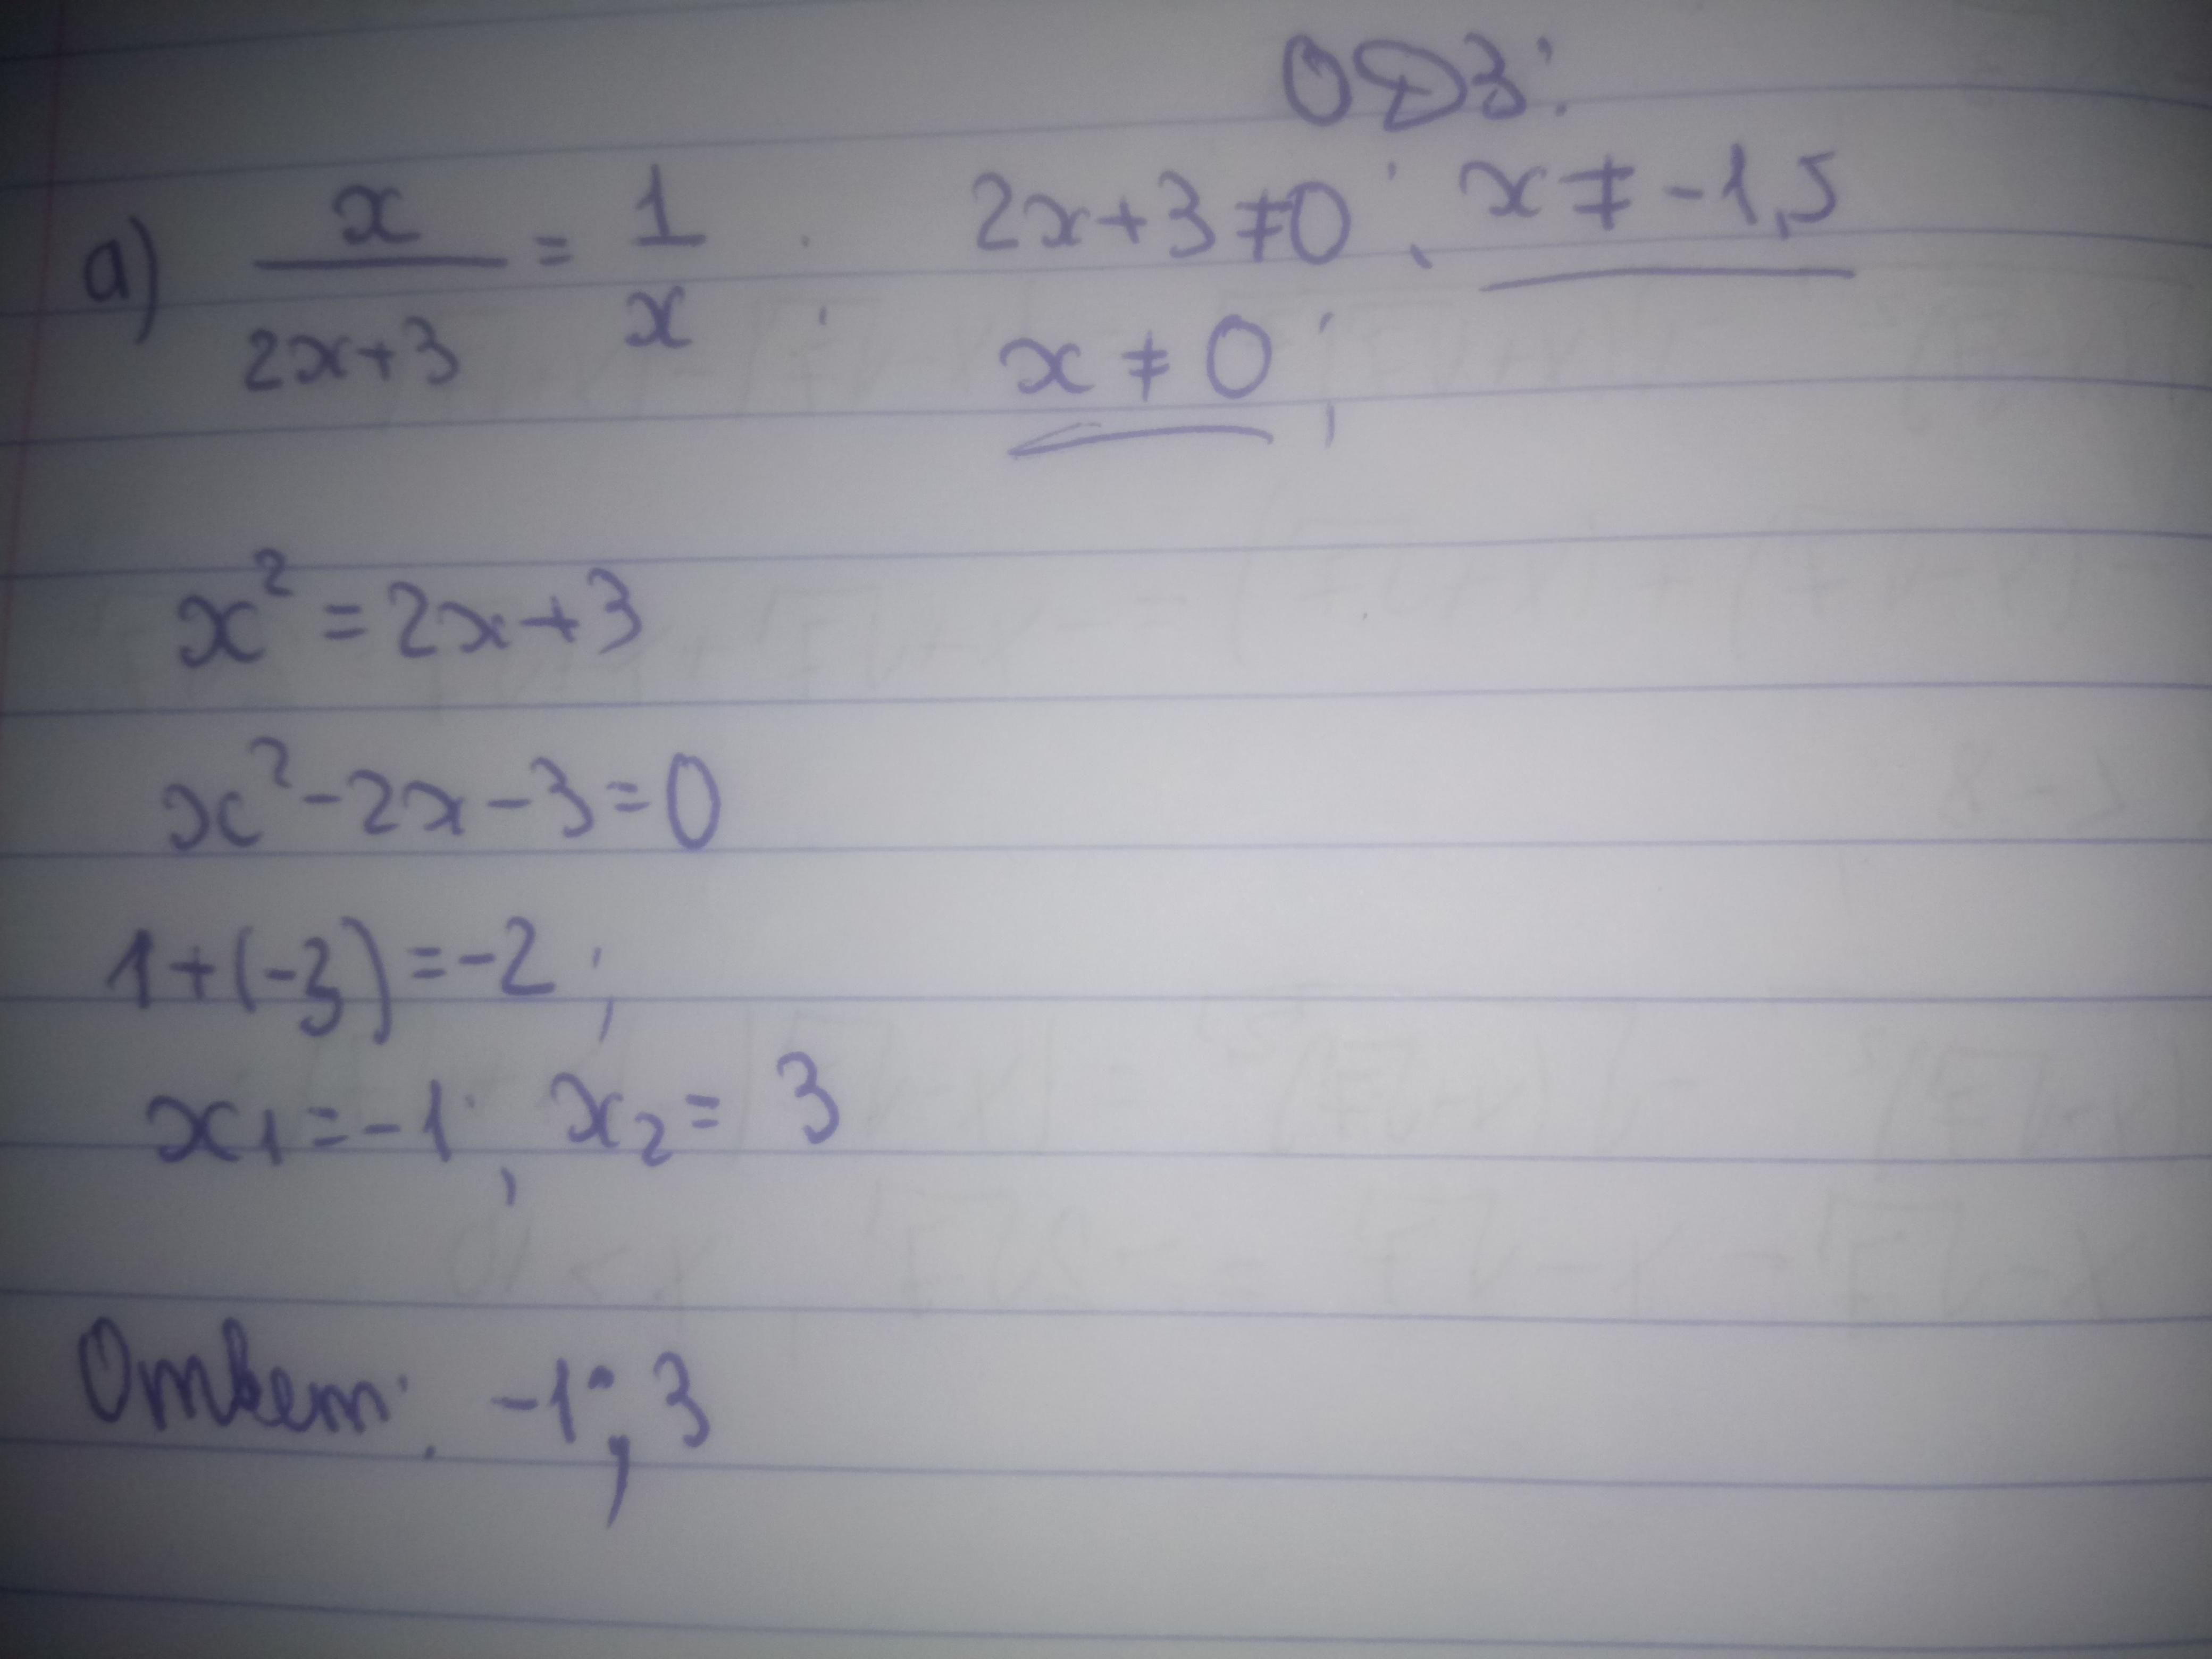 ОДЗ:
а) x/(2x+3) = 1/x ; 2x+3≠0; x ≠ -1,5
x ≠ 0;
x² = 2x+3
x²-2x-3=0
1+(-3)=-2;
x₁=-1; x₂= 3
Ответ: -1; 3